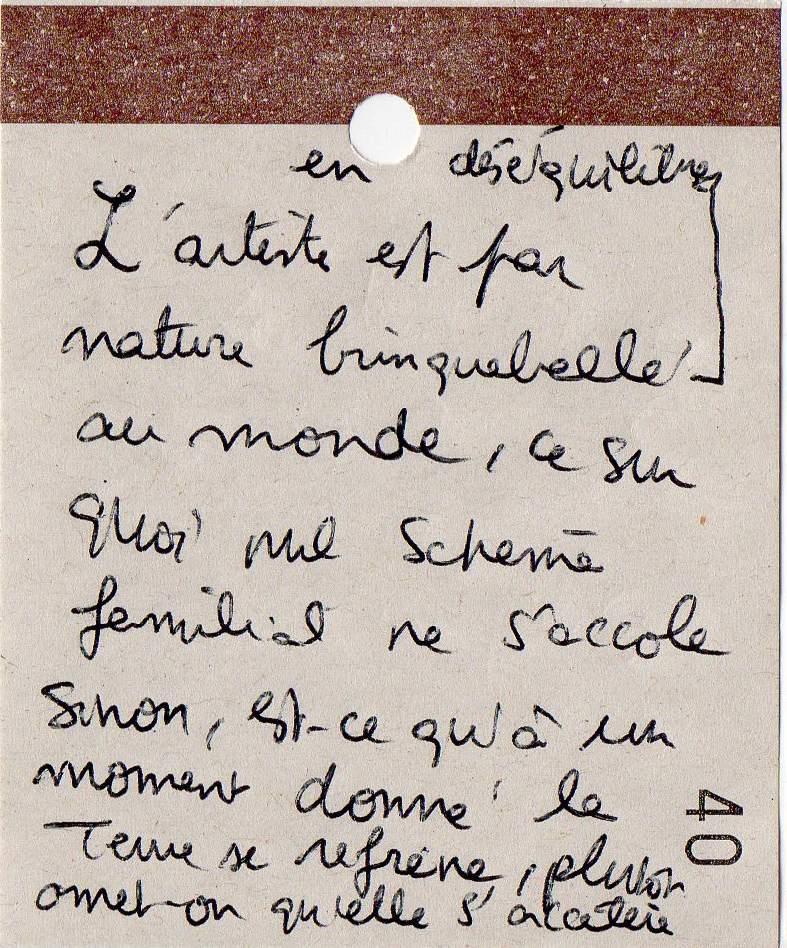 en déséquilibre
L'artiste est par
nature brinquebellé
au monde, ce sur
quoi nul schema
familial ne s'accole
Sinon, est-ce qu'à un
moment donné la
Terre se refrène, plutôt
omet-on qu'elle s'acatère
40